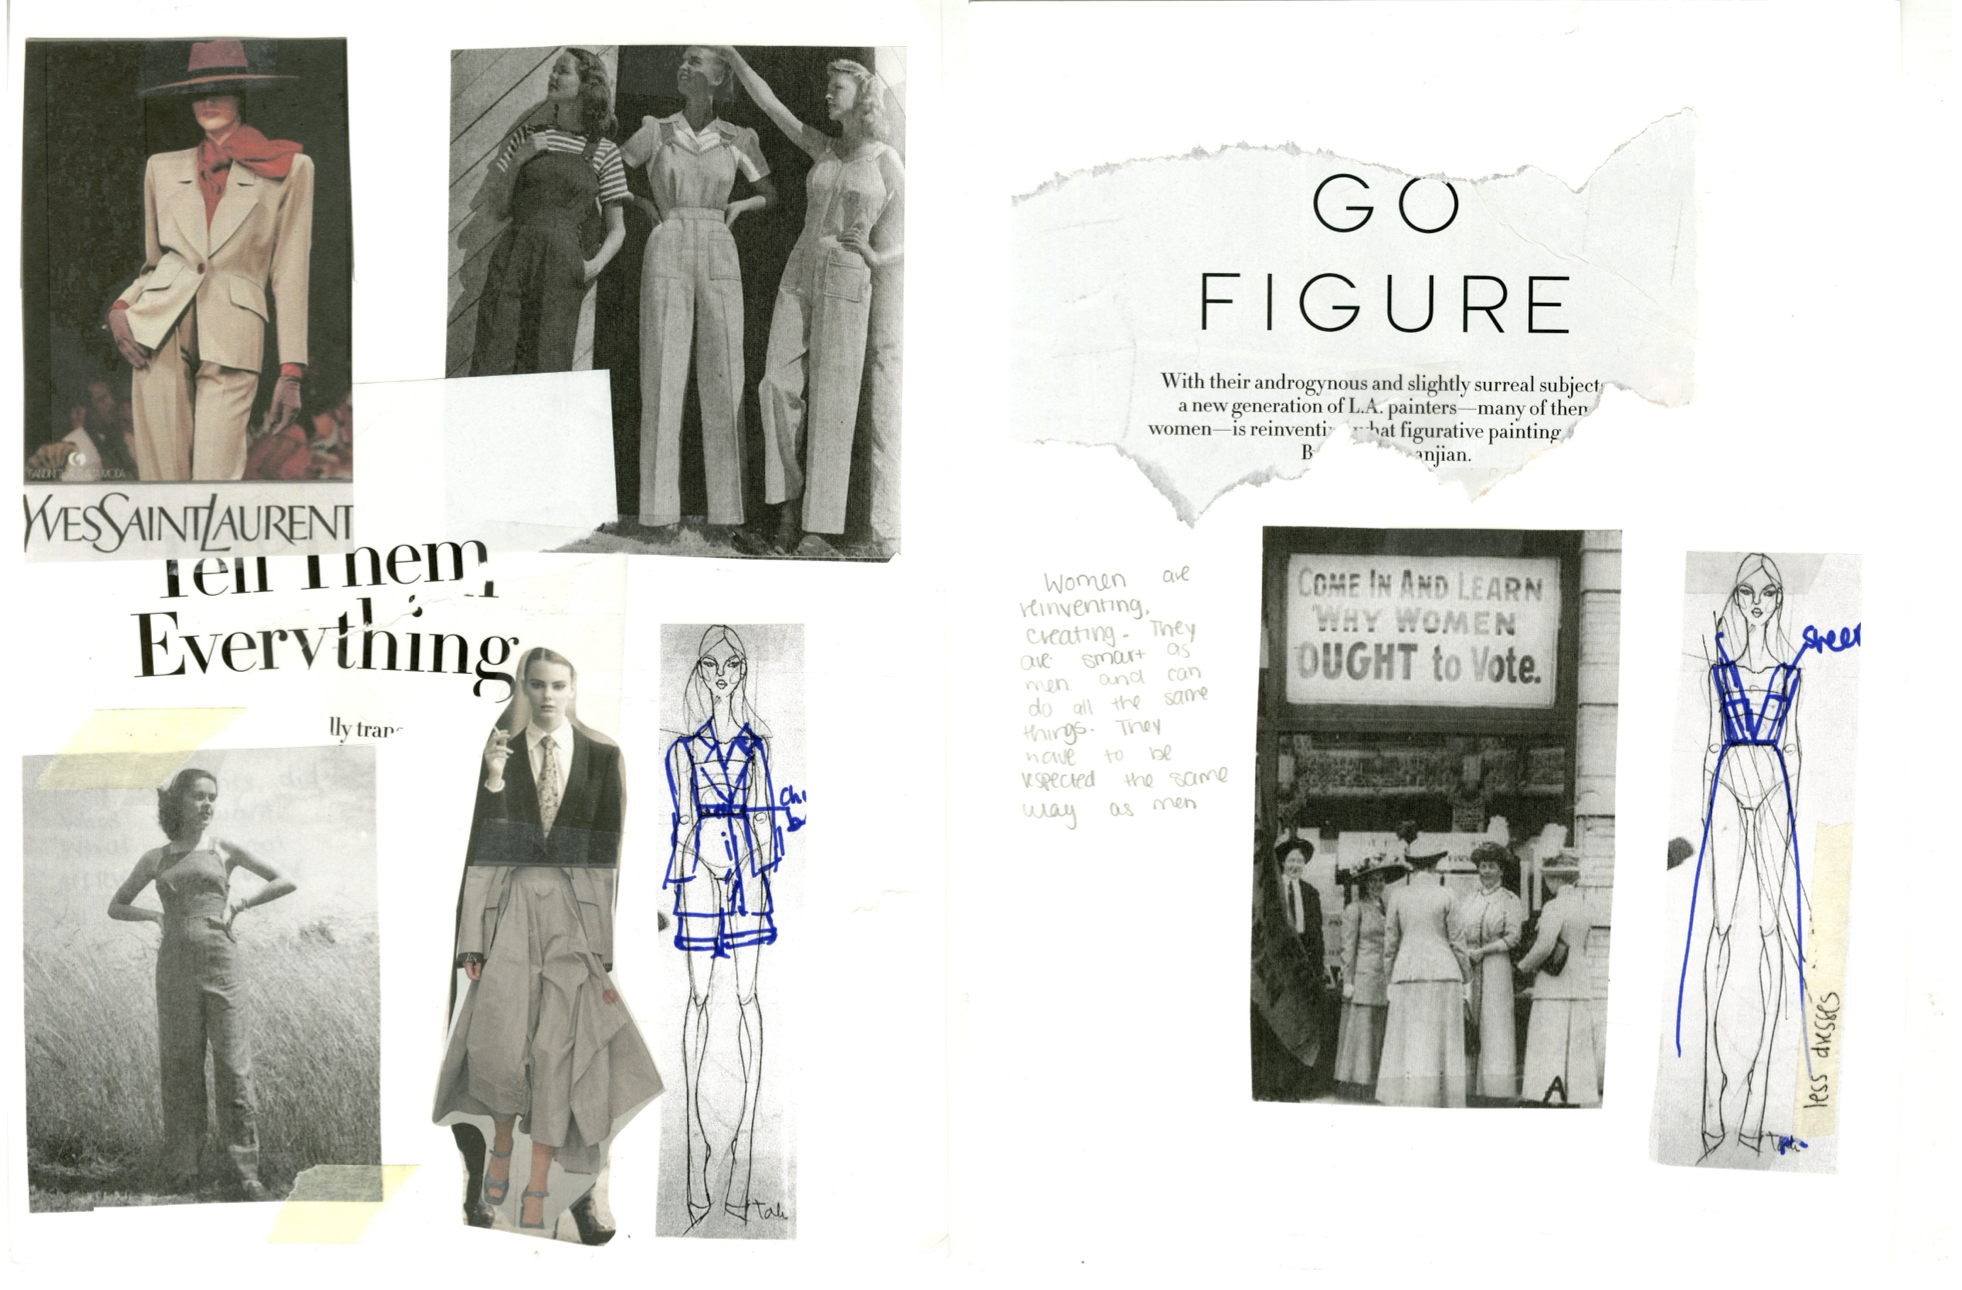 YVESSAINTLAURENT
Tell Them
Everything
lly trans
Tali
GO
FIGURE
With their androgynous and slightly surreal subjects
a new generation of L.A. painters—many of then
women—is reinventi what figurative painting
B anjian.
Women are
reinventing,
creating. They
are smart as
men and can
do all the same
things. They
have to be
respected the same
way as men
COME IN AND LEARN
"WHY WOMEN
OUGHT to Vote.
A
sheer
less dresses